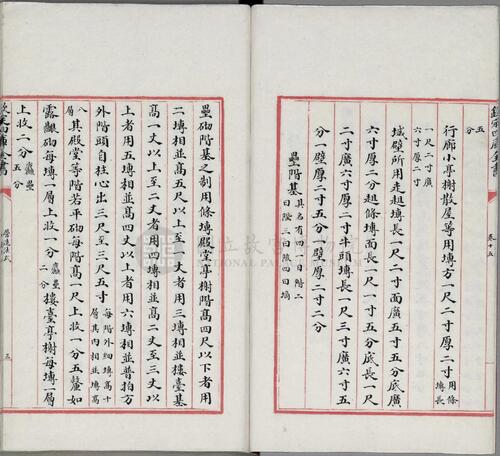 卷十五
五分
行廊小亭榭散屋等用塼方一尺二寸厚二寸 用條塼長
一尺二寸廣六寸厚二寸
城壁所用走趄塼長一尺二寸面廣五寸五分底廣
六寸厚二分趄條塼面長一尺一寸五分底長一尺
二寸廣六寸厚二寸牛頭塼長一尺三寸廣六寸五
分一壁厚二寸五分一壁厚二寸二分
壘階基 其名有四一曰階二曰陛三曰陔四曰墒
壘砌階基之制用條塼殿堂亭榭階高四尺以下者用
二塼相並高五尺以上至一丈者用三塼相並樓臺基
高一丈以上至二丈者用四塼相並高二丈至三丈以
上者用五塼相並高四丈以上者用六塼相並普拍方
外階頭自柱心出三尺至三尺五寸 每階外細塼高十層其內相並塼高
八層 其殿堂等階若平砌每階高一尺上收一分五釐如
露齦砌每塼一層上收一分 麤壘二分 樓臺亭榭每塼一層
上收二分 麤壘五分
營造法式
五